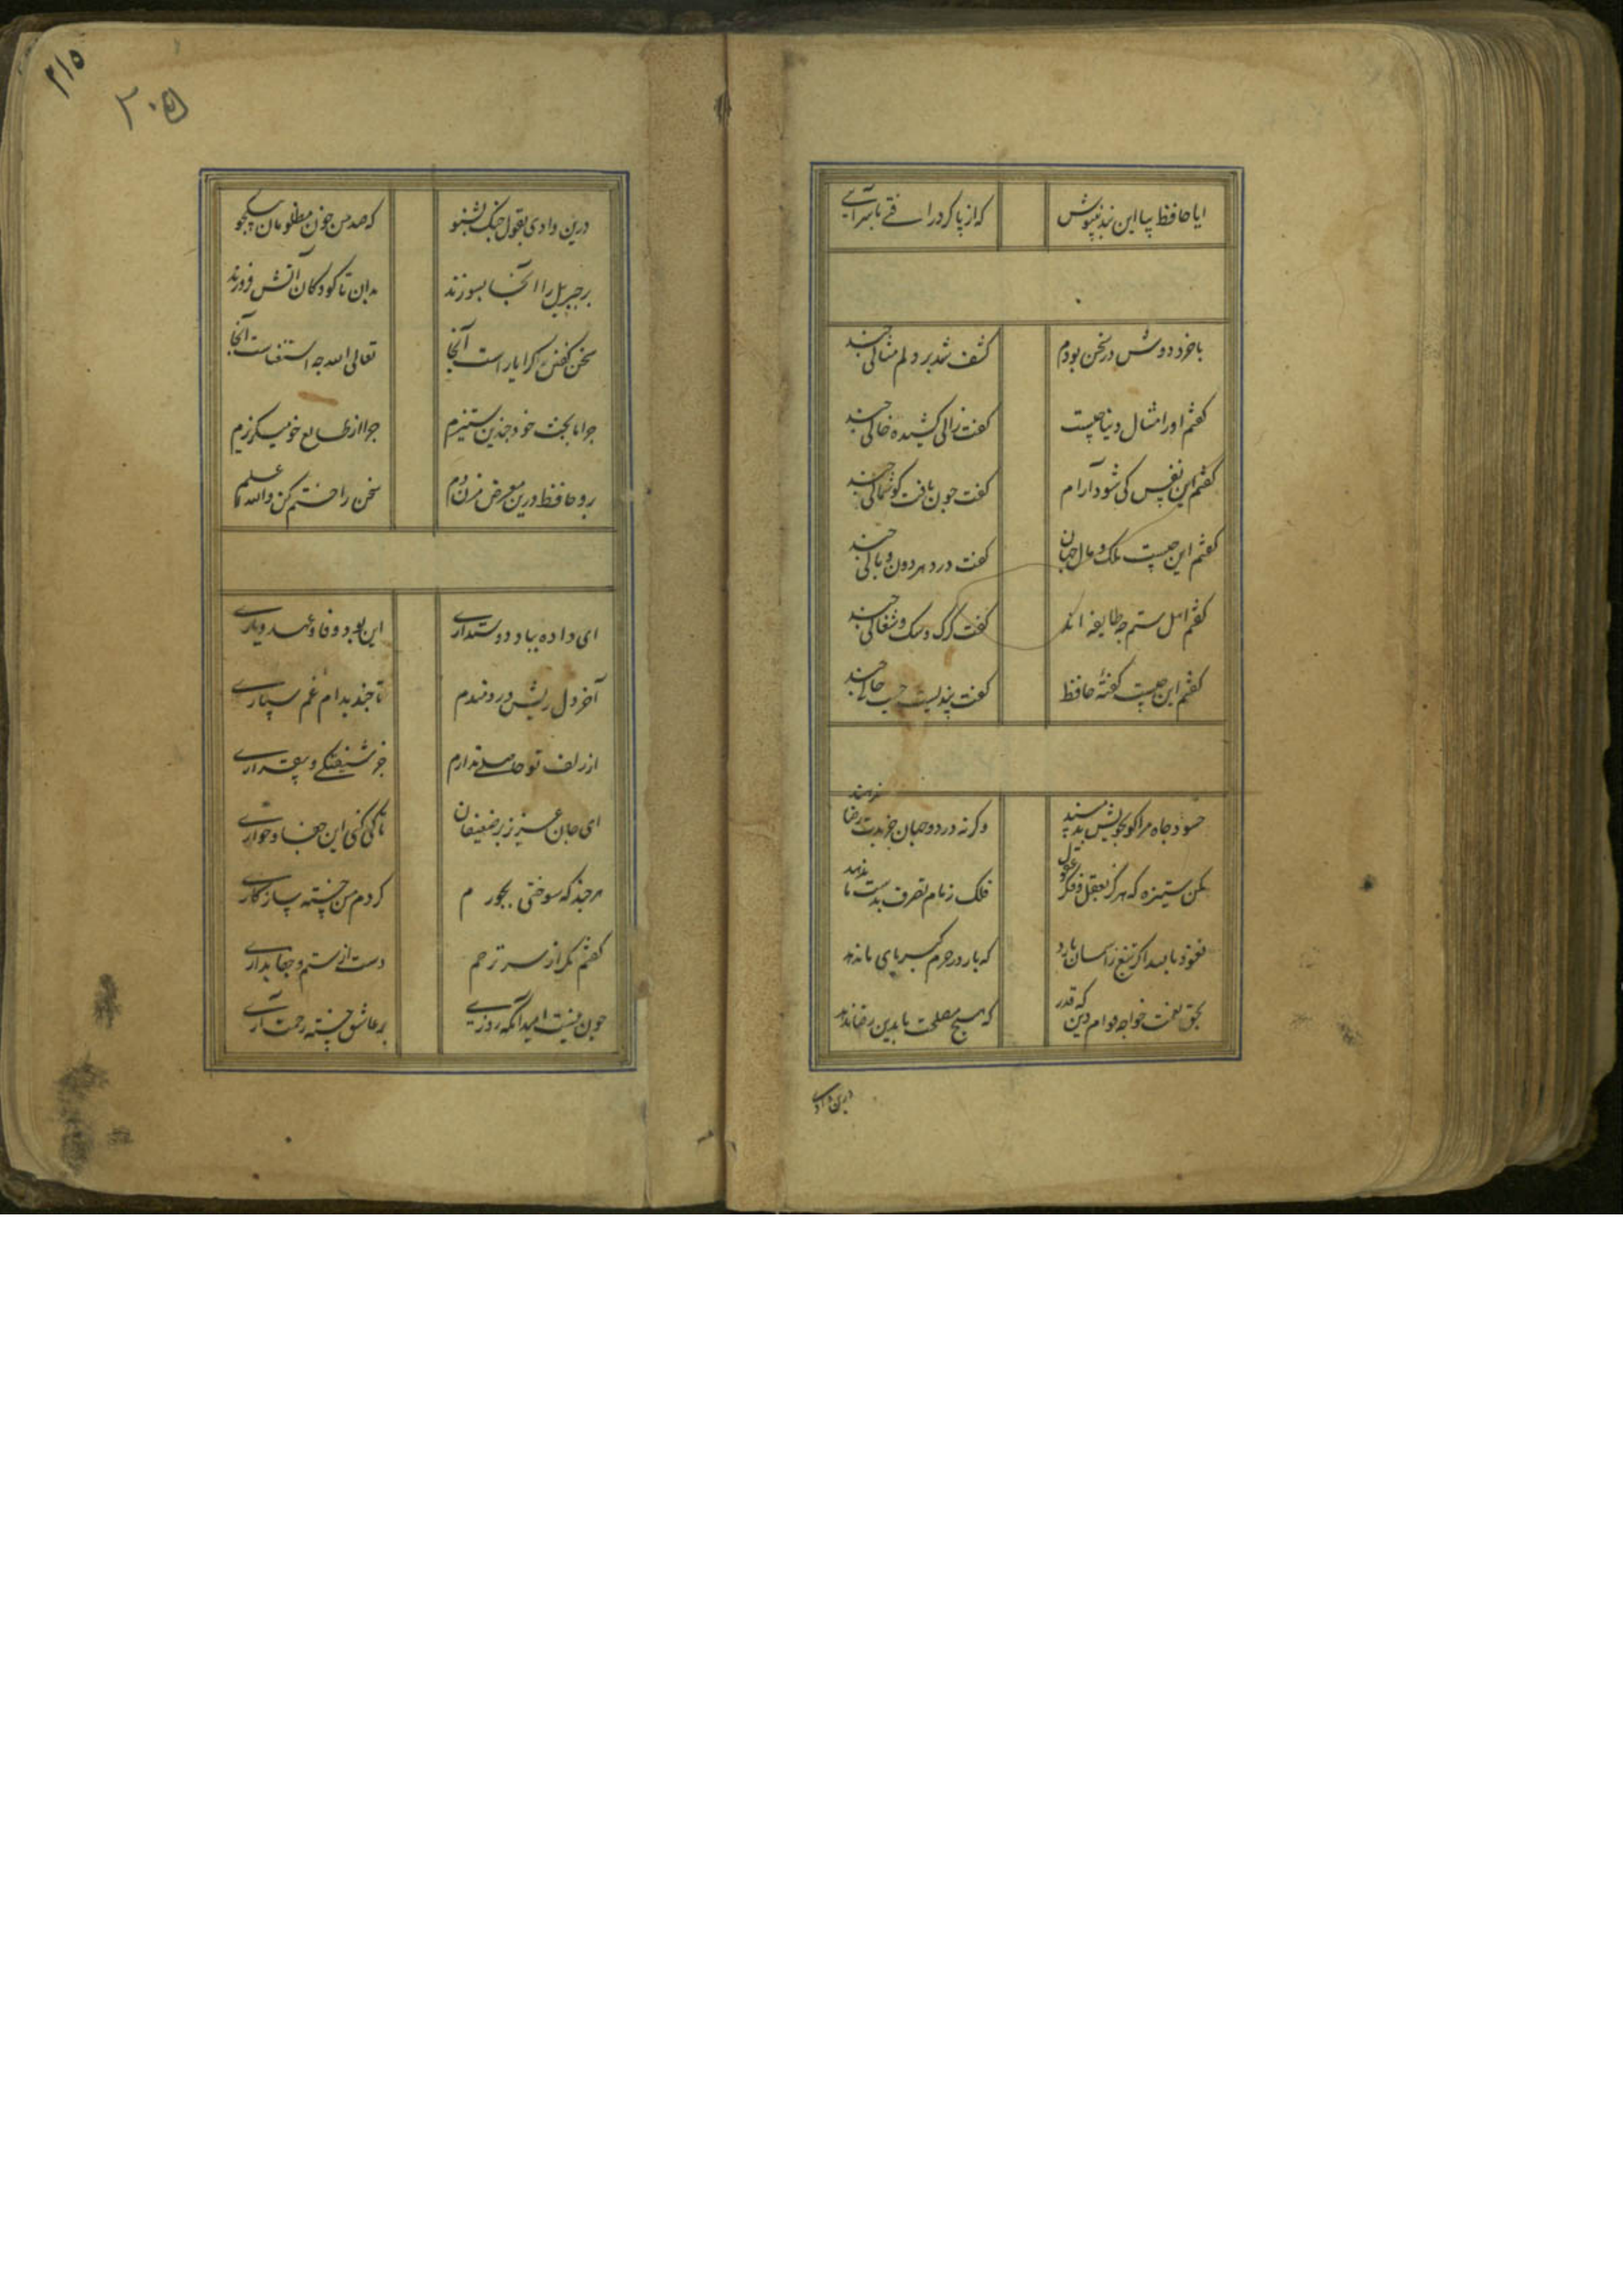 ایا حافظ بیا این پند بنیوش
که از پا کرد را قی با سرآیی
با خرد دوش در سخن بودم
کشف شد بر دلم مثالی چند
کفتم او را مثال دنیا چیست
کفت زالی کشیده خالی چند
کفتم این نفس کی شود آرام
کفت چون یافت کوشمالی چند
کفتم این چیست ملک و مال جهان
کفت درد سر دون وبالی چند
کفتم اهل ستم چه طایفه اند
کفت کرک و سک و شغالی چند
کفتم این چیست کفتهٔ حافظ
کفت پندیست حسب حالی چند
حسود جاه مرا کو بخویش بد مپسند
وکرنه در دو جهان جز بدت رضا ندهند
مکن ستیزه که هرکز بعقل و فکر و عقول
فلک زمام تصرف بدست ما ندهد
نعوذ بالله اکر تیغ ز آسمان بارد
که بار در حرم کبریای ما ندهد
بحق نعمت خواجه قوام دین که قدر
که هیچ مصلحت ما بدین رضا ندهد
درین وادی
۲۱۵
۲۰۵
درین وادی بقول چنک بشنو
که صد من خون مظلومان بیکجو
پر جبریل را آنجا بسوزند
بدان تا کودکان آتش فروزند
سخن کفتن کرا یاراست آنجا
تعالی الله چه استغناست آنجا
چرا با بخت خود چندین ستیزم
چرا از طالع خود میکریزم
رو حافظ درین معرض مزن دم
سخن را ختم کن والله اعلم
ای داده بباد دوستداری
این بود وفا و عهد و یاری
آخر دل ریش دردمندم
تا چند بدام غم سپاری
از زلف تو حاصلی ندارم
جز شیفتکی و بیقراری
ای جان عزیز بر ضعیفان
تا کی کنی این جفا و خواری
هر چند که سوختی بجورم
کردم من خسته سازکاری
کفتم مکر از سر ترحم
دست از ستم و جفا بداری
چون نیست امید آنکه روزی
بر عاشق خسته رحمت آری